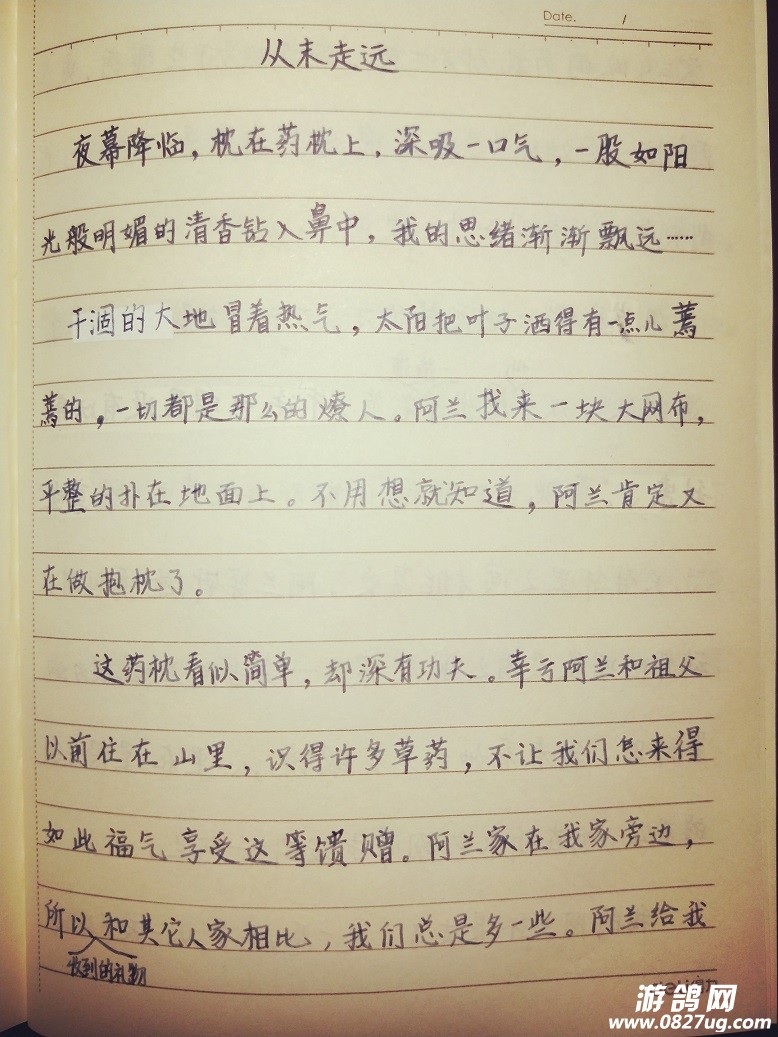 Date. /
从末走远
夜幕降临，枕在药枕上，深吸一口气，一股如阳
光般明媚的清香钻入鼻中，我的思绪渐渐飘远……
干涸的大地冒着热气，太阳把叶子洒得有一点儿蔫
蔫的，一切都是那么的燎人。阿兰找来一块大网布，
平整的扑在地面上。不用想就知道，阿兰肯定又
在做抱枕了。
这药枕看似简单，却深有功夫。幸亏阿兰和祖父
以前住在山里，识得许多草药，不让我们怎来得
如此福气享受这等馈赠。阿兰家在我家旁边，
所以和其它人家相比，我们总是多一些。阿兰给我
收到的礼物
游鸽网
www.0827ug.com